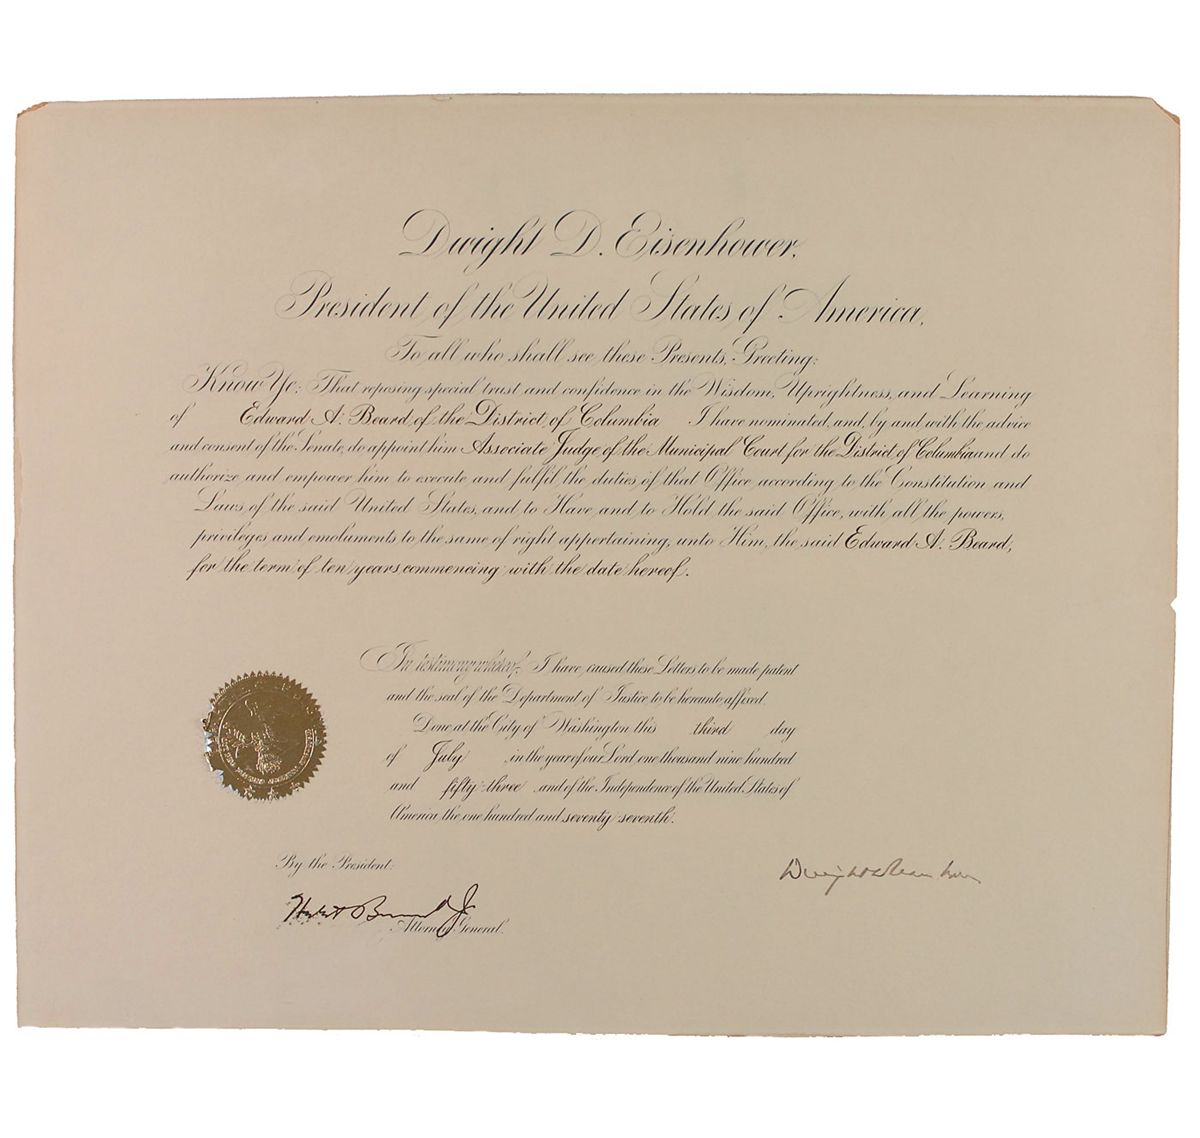 Dwight D. Eisenhower,
President of the United States of America,
To all who shall see these Presents, Greeting:
Know Ye; That reposing special trust and confidence in the Wisdom, Uprightness, and Learning
of Edward A. Beard, of the District of Columbia I have nominated, and, by and with the advice
and consent of the Senate, do appoint him Associate Judge of the Municipal Court for the District of Columbia and do
authorize and empower him to execute and fulfil the duties of that Office, according to the Constitution and
Laws of the said United States, and to Have and to Hold the said Office, with all the powers,
privileges and emoluments to the same of right appertaining, unto Him, the said Edward A. Beard,
for the term of ten years commencing with the date hereof.
In testimony whereof, I have caused these Letters to be made patent
and the seal of the Department of Justice to be hereunto affixed.
Done at the City of Washington this third day
of July, in the year of our Lord one thousand nine hundred
and fifty-three, and of the Independence of the United States of
America the one hundred and seventy-seventh.
By the President:
Dwight D Eisenhower
Herbert Brownell Jr
Attorney General.